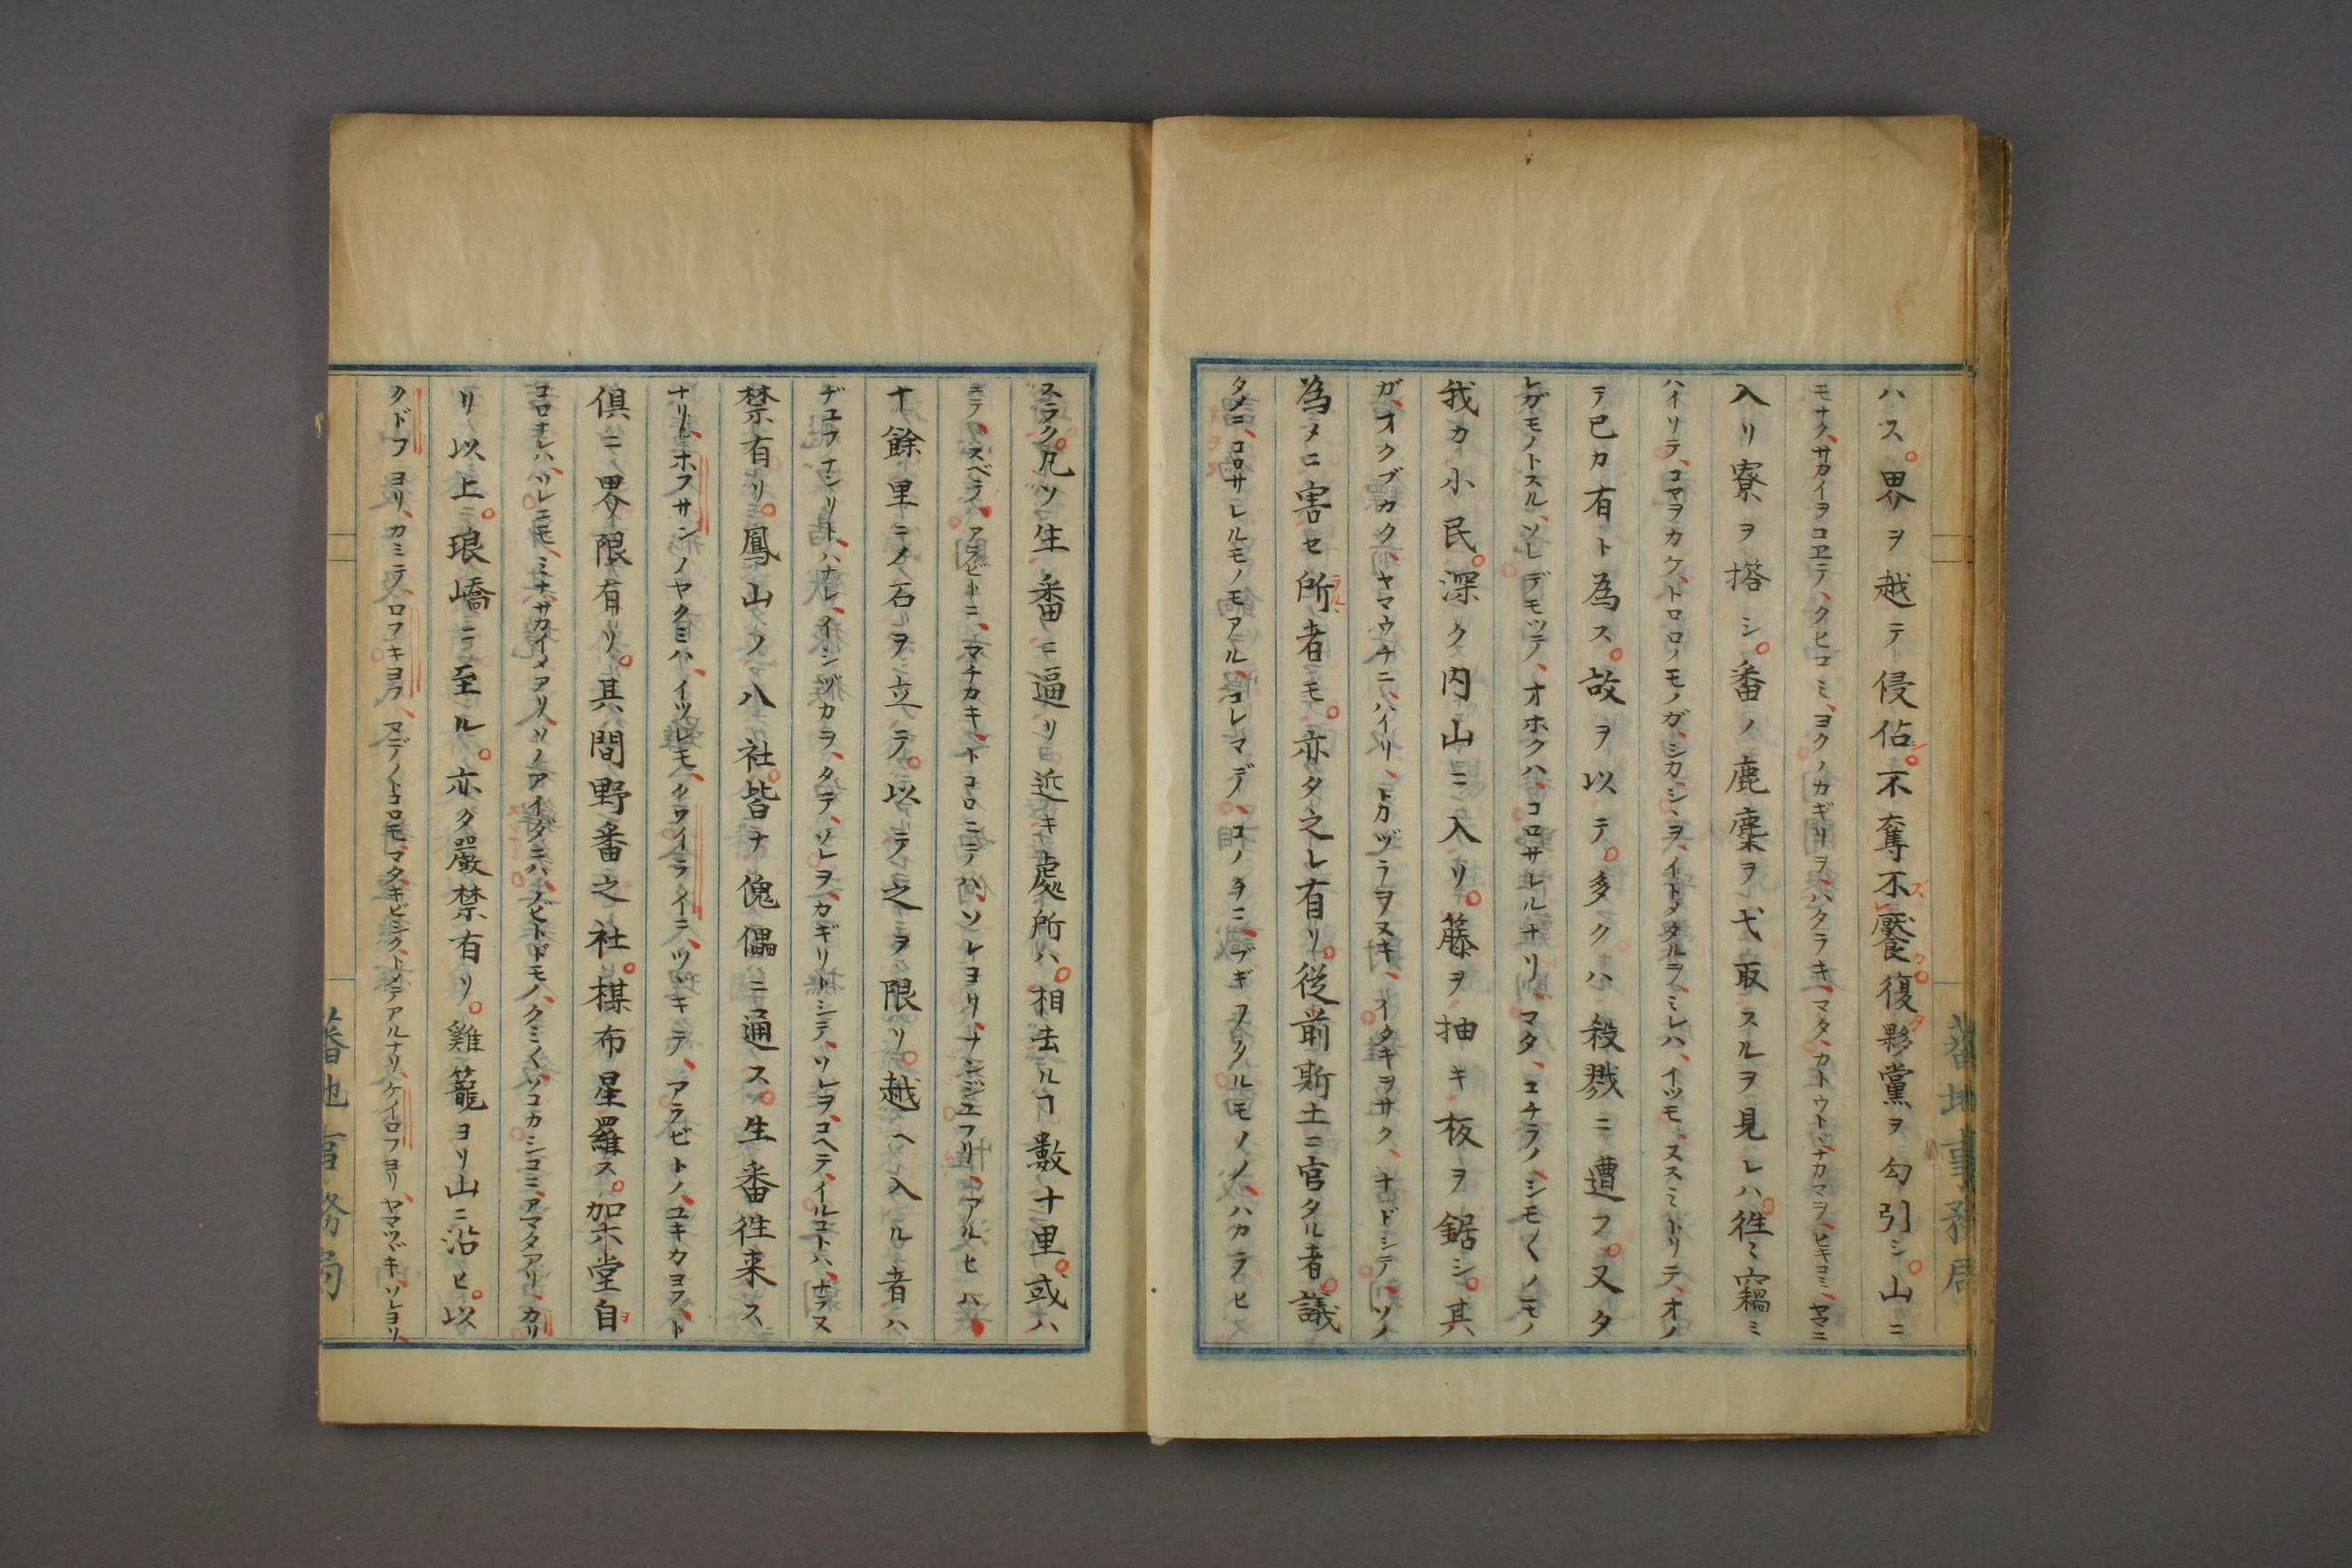 ハス。界ヲ越テ侵佔シ。不奪不饜ズク。復タ夥黨ヲ勾引シ。山ニ
モナク、サカイヲコヱテ、クヒコミ、ヨクノカギリヲ、ハタラキ、マタ、カトウド、ナカマヲ、ヒキコミ、ヤマニ
入リ寮ヲ搭シ。番ノ鹿麞ヲ弋取スルヲ見レハ。徃〻竊ミ
ハイリテ、コヤヲカケ、トロロノモノガ、シカ、シヽヲ、イトメタルヲ、ミレハ、イツモ、ススミトリテ、オノ
テ己カ有ト為ス。故ヲ以テ。多クハ殺戮ニ遭フ。又タ
レガモノトスル、ソレデモツテ、オホクハ、コロサレルナリ、マタ、コチラノ、シモ〱ノモノ
我カ小民。深ク内山ニ入リ。藤ヲ抽キ板ヲ鋸シ。其
ガ、オクブカク、ヤマウチニ、ハイリ、トカヅラヲヌキ、イタキヲサク、ナドシテ、ソノ
為メニ害セ所ラルヽ者モ。亦タ之レ有リ。從前斯土ニ官タル者。議
タメニ、コロサレルモノモアル、コレマデ、コノチニ、ブギフタルモノノ、ハカラヒ
スラク。凡ソ生番ニ逼リ近キ處所ハ。相去ルヿ數十里。或ハ
ニテ、スベテ、アラビトニ、マチカキ、トコロニテハ、ソレヨリ、ナンジユフリ、アルヒハ
十餘里ニノ石ヲ立テ。以テ之ヲ限リ。越ヘ入ル者ハ
ヂユフナンリト、ハナレ、イシヅカヲ、タテ、ソレヲ、カギリトシテ、ソレヲ、コヘテ、イルコトハ、ナラヌ
禁有リ。鳳山ノ八社。皆ナ傀儡ニ通ス。生番徃来ス
ナリ、ホフサンノヤクミハ、イツレモ、クワイライニ、ツヾキテ、アラビトノ、ユキカヨフ、ト
倶ニ界限有リ。其間野番之社。棋布星羅ス。加六堂自ヨ
コロナレハ、ソレニモ、ミナ、サカイメアリ、ソノアイダニハ、ノビトドモノ、クミ〱、ソコカシコニ、アマタアリ、カリ
リ以上。琅嶠ニ至ル。亦タ嚴禁有リ。雞籠ヨリ山ニ沿ヒ。以
クドフヨリ、カミテ、ロフキヨフ、マデノトコロモ、マタ、キビシク、トメテアルナリ、ケイロフヨリ、ヤマツヾキ、ソレヨリ、
蕃地事務局
蕃地事務局